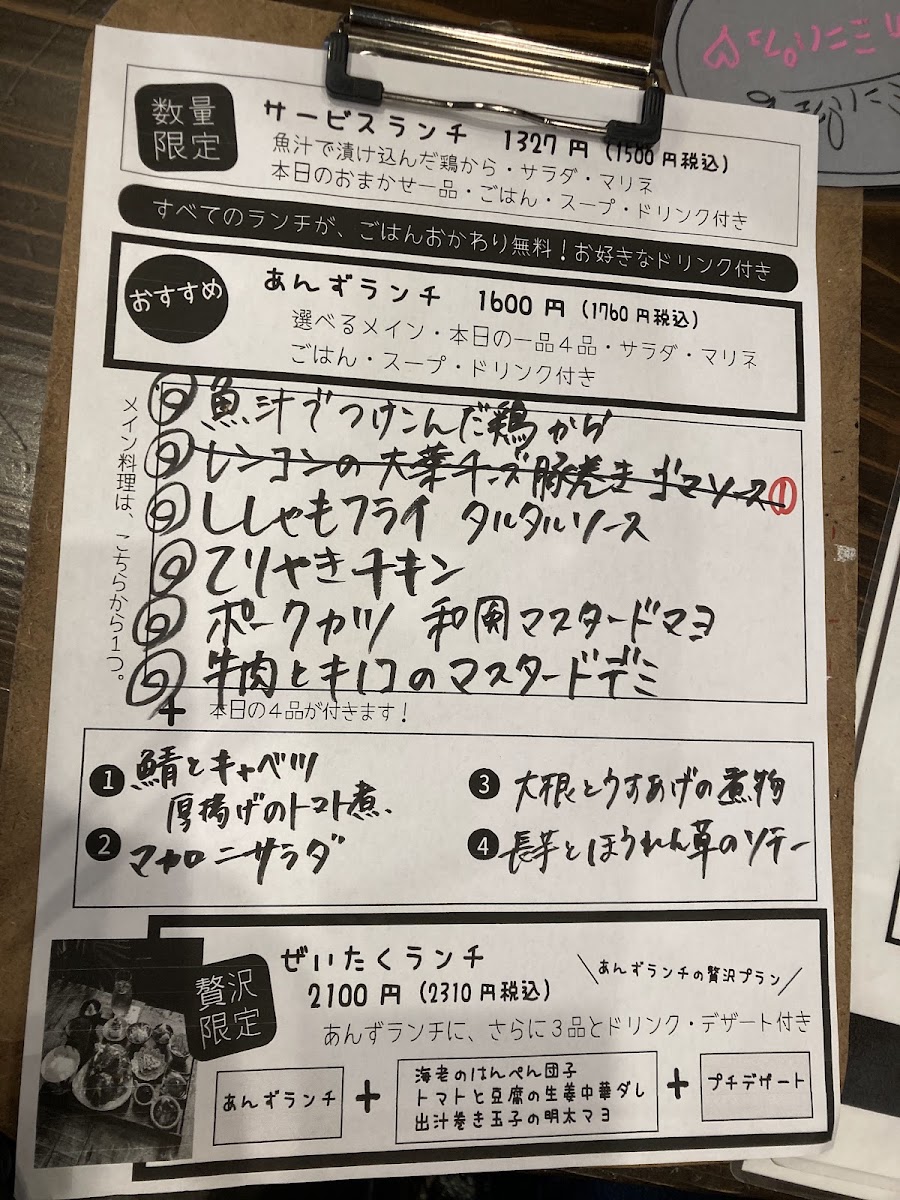 数量
限定
サービスランチ 1327円(1500円税込)
魚汁で漬け込んだ鶏から・サラダ・マリネ
本日のおまかせ一品・ごはん・スープ・ドリンク付き
すべてのランチが、ごはんおかわり無料!お好きなドリンク付き
おすすめ
あんずランチ 1600円(1760円税込)
選べるメイン・本日の一品4品・サラダ・マリネ
ごはん・スープ・ドリンク付き
メイン料理は、こちらから1つ。
魚汁でつけこんだ鶏から
レンコンの大葉チーズ豚巻きゴマソース①
ししゃもフライ タルタルソース
てりやきチキン
ポークカツ 和風マスタードマヨ
牛肉とキノコのマスタードデミ
+ 本日の4品が付きます!
❶ 鯖とキャベツ
厚揚げのトマト煮
❷ マカロニサラダ
❸ 大根とうすあげの煮物
❹ 長芋とほうれん草のソテー
贅沢
限定
ぜいたくランチ
2100円(2310円税込)
\あんずランチの贅沢プラン/
あんずランチに、さらに3品とドリンク・デザート付き
あんずランチ
+
海老のはんぺん団子
トマトと豆腐の生姜中華ダレ
出汁巻き玉子の明太マヨ
+
プチデザート